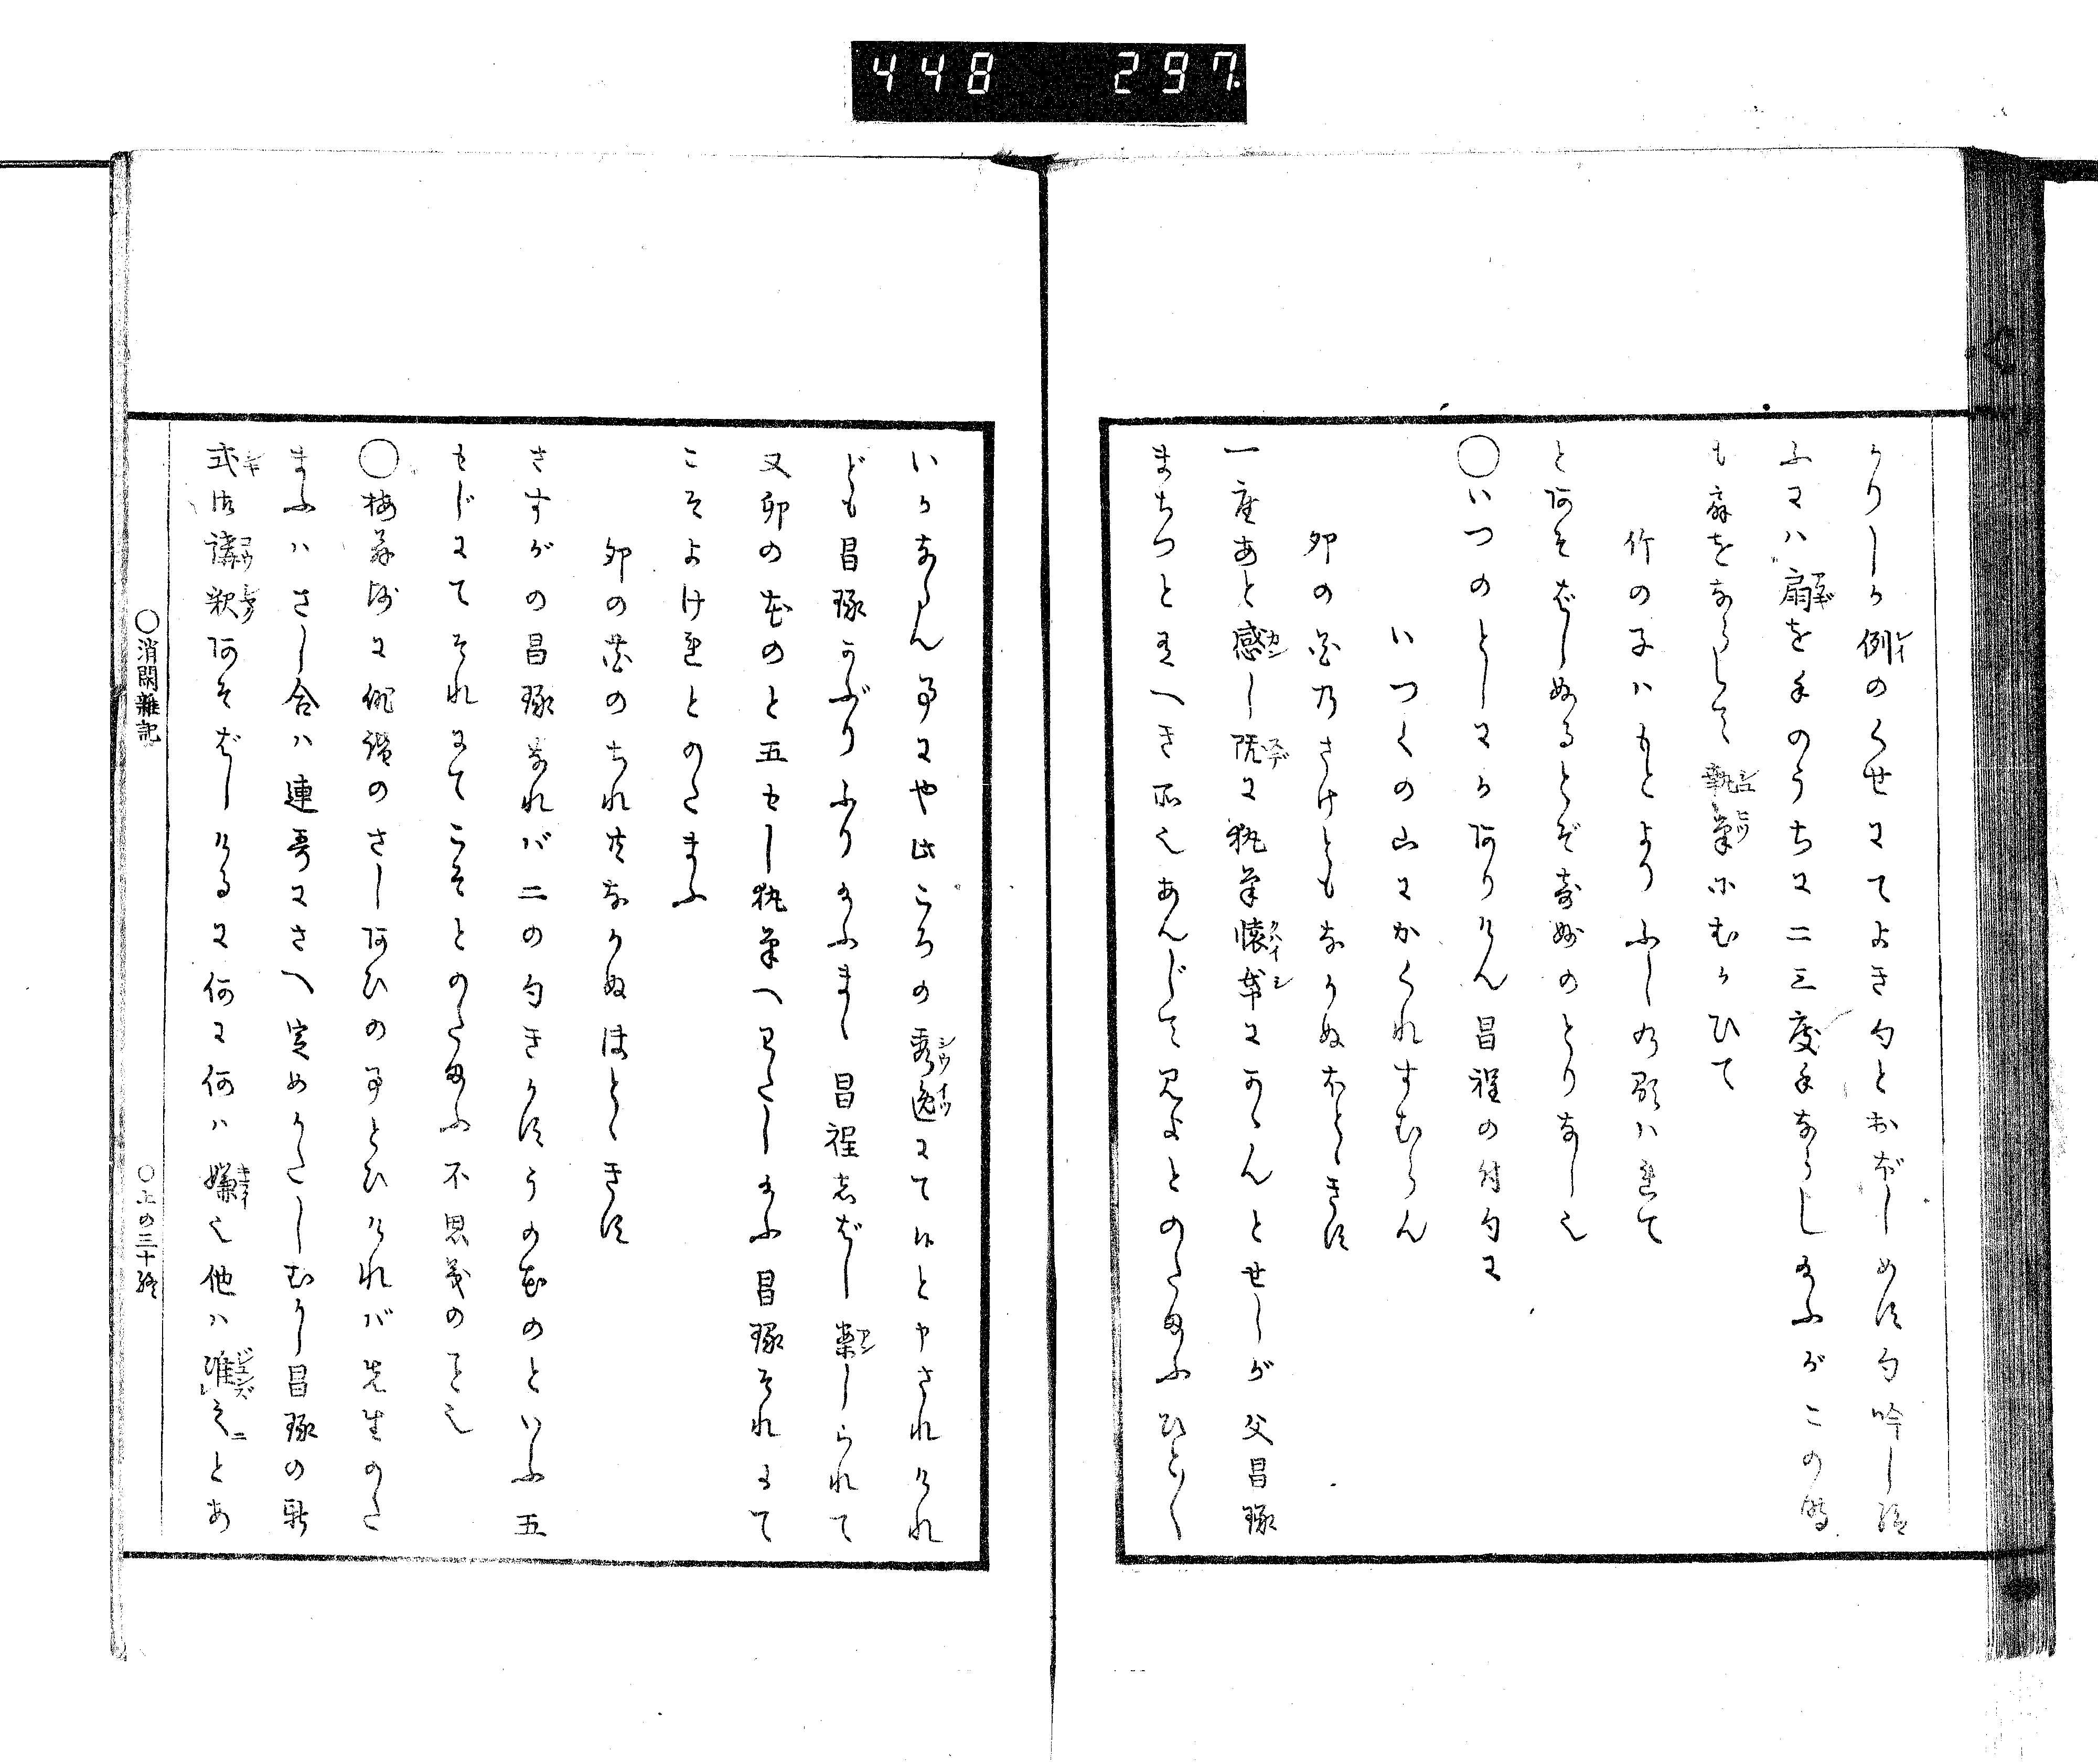 448 297
かりしか例のくせにてよき句とおぼしめす句吟し給
ふには扇を手のうちに二三度手ならし給ふがこの時
も扇をならして執筆にむかひて
竹の子はもとよりふしの顕はれて
とあそばしぬるとぞ奇妙のとりなし也
○いつのとしにかありけん昌程の付句に
いつくの山にかくれすむらん
卯の花のさけともなかぬほとゝきす
一座あと感し既に執筆懐帋にかゝんとせしが父昌琢
まちつとあへき所也あんじて見よとのたまふひとく
いかならん事にや此ころの秀逸にて候と申されけれ
ども昌琢かぶりふり給ふまゝ昌程志ばし案しられて
又卯の花のと五もし執筆へわたし給ふ昌琢それにて
こそよけれとのたまふ
卯の花のちれ共なかぬほとゝきす
さすがの昌琢なれバ二の句きかすうの花のといふ五
もじにてそれにてこそとのたまふ不思義のこと也
○梅翁師に俳諧のさしあひの事とひけれバ先生のた
まふハさし合ハ連哥にさへ定めかたしむかし昌琢の新
式御講釈あそばしけるに何に何ハ嫌也他ハ准之とあ
○消閑雜記
○上の三十終